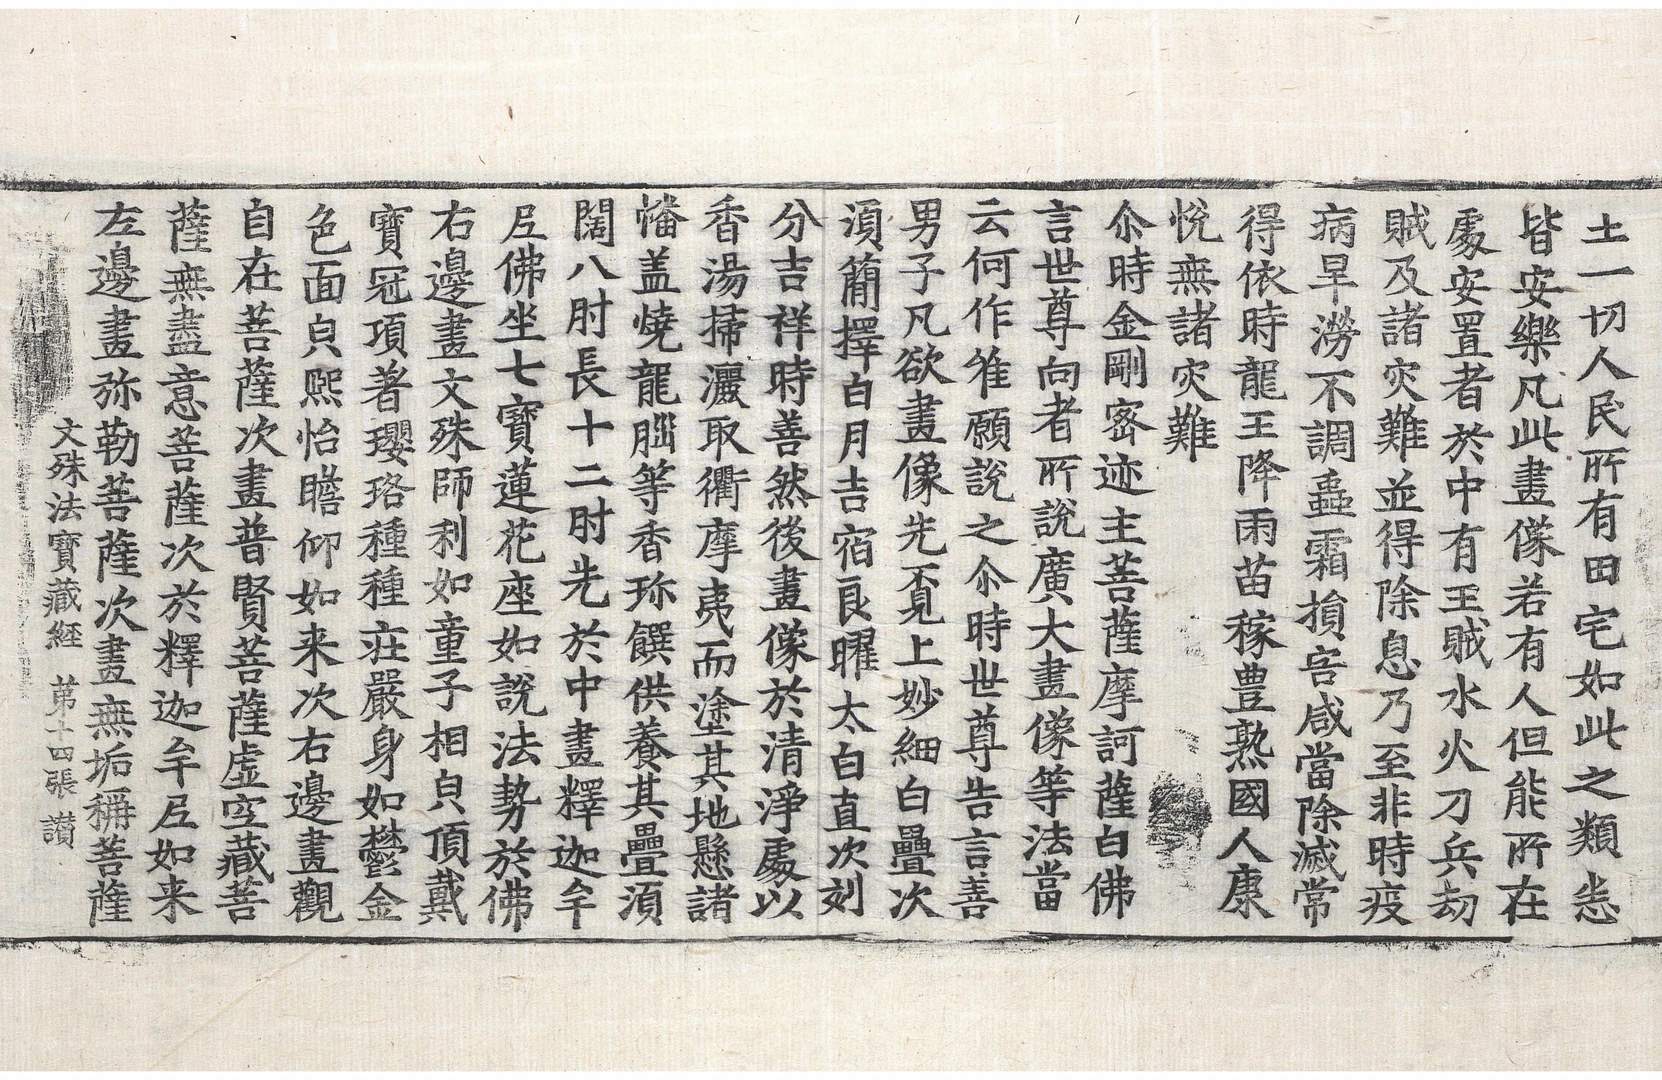 土一切人民所有田宅如此之類悉
皆安樂凡此畫像若有人但能所在
處安置者於中有王賊水火刀兵劫
賊及諸灾難並得除息乃至非時疫
病旱澇不調蟲霜損害咸當除滅常
得依時龍王降雨苗稼豊熟國人康
悅無諸灾難
尒時金剛宻迹主菩薩摩訶薩白佛
言世尊向者所說廣大畫像等法當
云何作唯願說之尒時世尊告言善
男子凡欲畫像先覔上妙細白疊次
湏蕳擇白月吉宿良曜太白直次刻
分吉祥時善然後畫像於清淨處以
香湯掃灑取衢摩夷而塗其地懸諸
幡盖燒龍腦等香珎饌供養其疊湏
闊八肘長十二肘先於中畫釋迦牟
尼佛坐七寶蓮花座如說法勢於佛
右邊畫文殊師利如童子相皃頂戴
寶冠項著瓔珞種種莊嚴身如鬱金
色面皃熙怡瞻仰如来次右邊畫觀
自在菩薩次畫普賢菩薩虛空藏菩
薩無盡意菩薩次於釋迦牟尼如来
左邊畫弥勒菩薩次畫無垢稱菩薩
文殊法寶藏經 苐十四張 讃